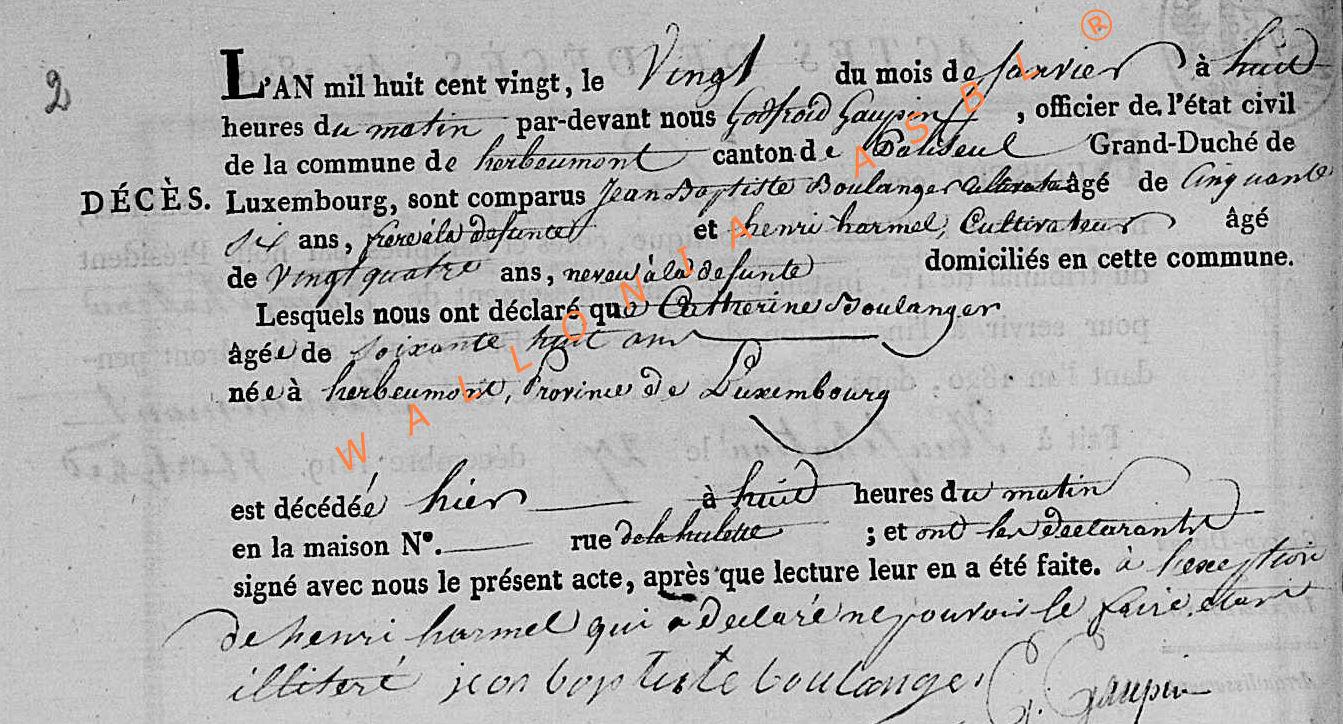 2
L'AN mil huit cent vingt, le Vingt du mois de janvier à huit
heures du matin par-devant nous Godfroid Gaupin, officier de l'état civil
de la commune de herbeumont canton de Paliseul Grand-Duché de
DÉCÈS. Luxembourg, sont comparus Jean Baptiste Boulanger Cultivateur âgé de Cinquante
Six ans, frere à la defunte et henri harmel, Cultivateur âgé
de Vingt quatre ans, neveu à la defunte domiciliés en cette commune.
Lesquels nous ont déclaré que Catherine Boulanger
âgée de Soixante huit ans
née à herbeumont, Province de Luxembourg
est décédée hier à huit heures du matin
en la maison N°. rue de la hulette ; et ont les declarants
signé avec nous le présent acte, après que lecture leur en a été faite. à l'exception
de henri harmel qui a declaré ne pouvoir le faire, étant
illiteré jean baptiste boulanger G. Gaupin
WALLONIA ASBL ®